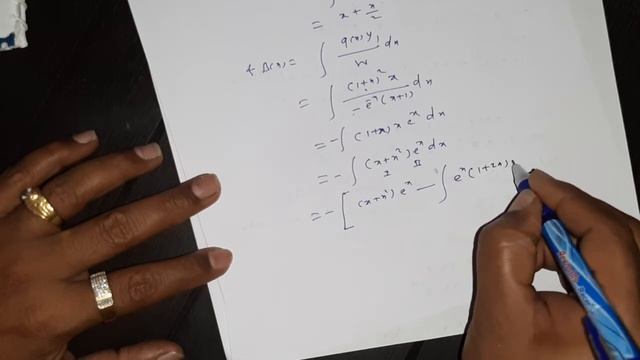 = x + x²/2
& B(x) = ∫ q(x) y₁ / W dx
= ∫ (1+x)² x / -eˣ(x+1) dx
= -∫ (1+x) x eˣ dx
= -∫ (x+x²) eˣ dx
I II
= -[ (x+x²) eˣ - ∫ eˣ (1+2x)